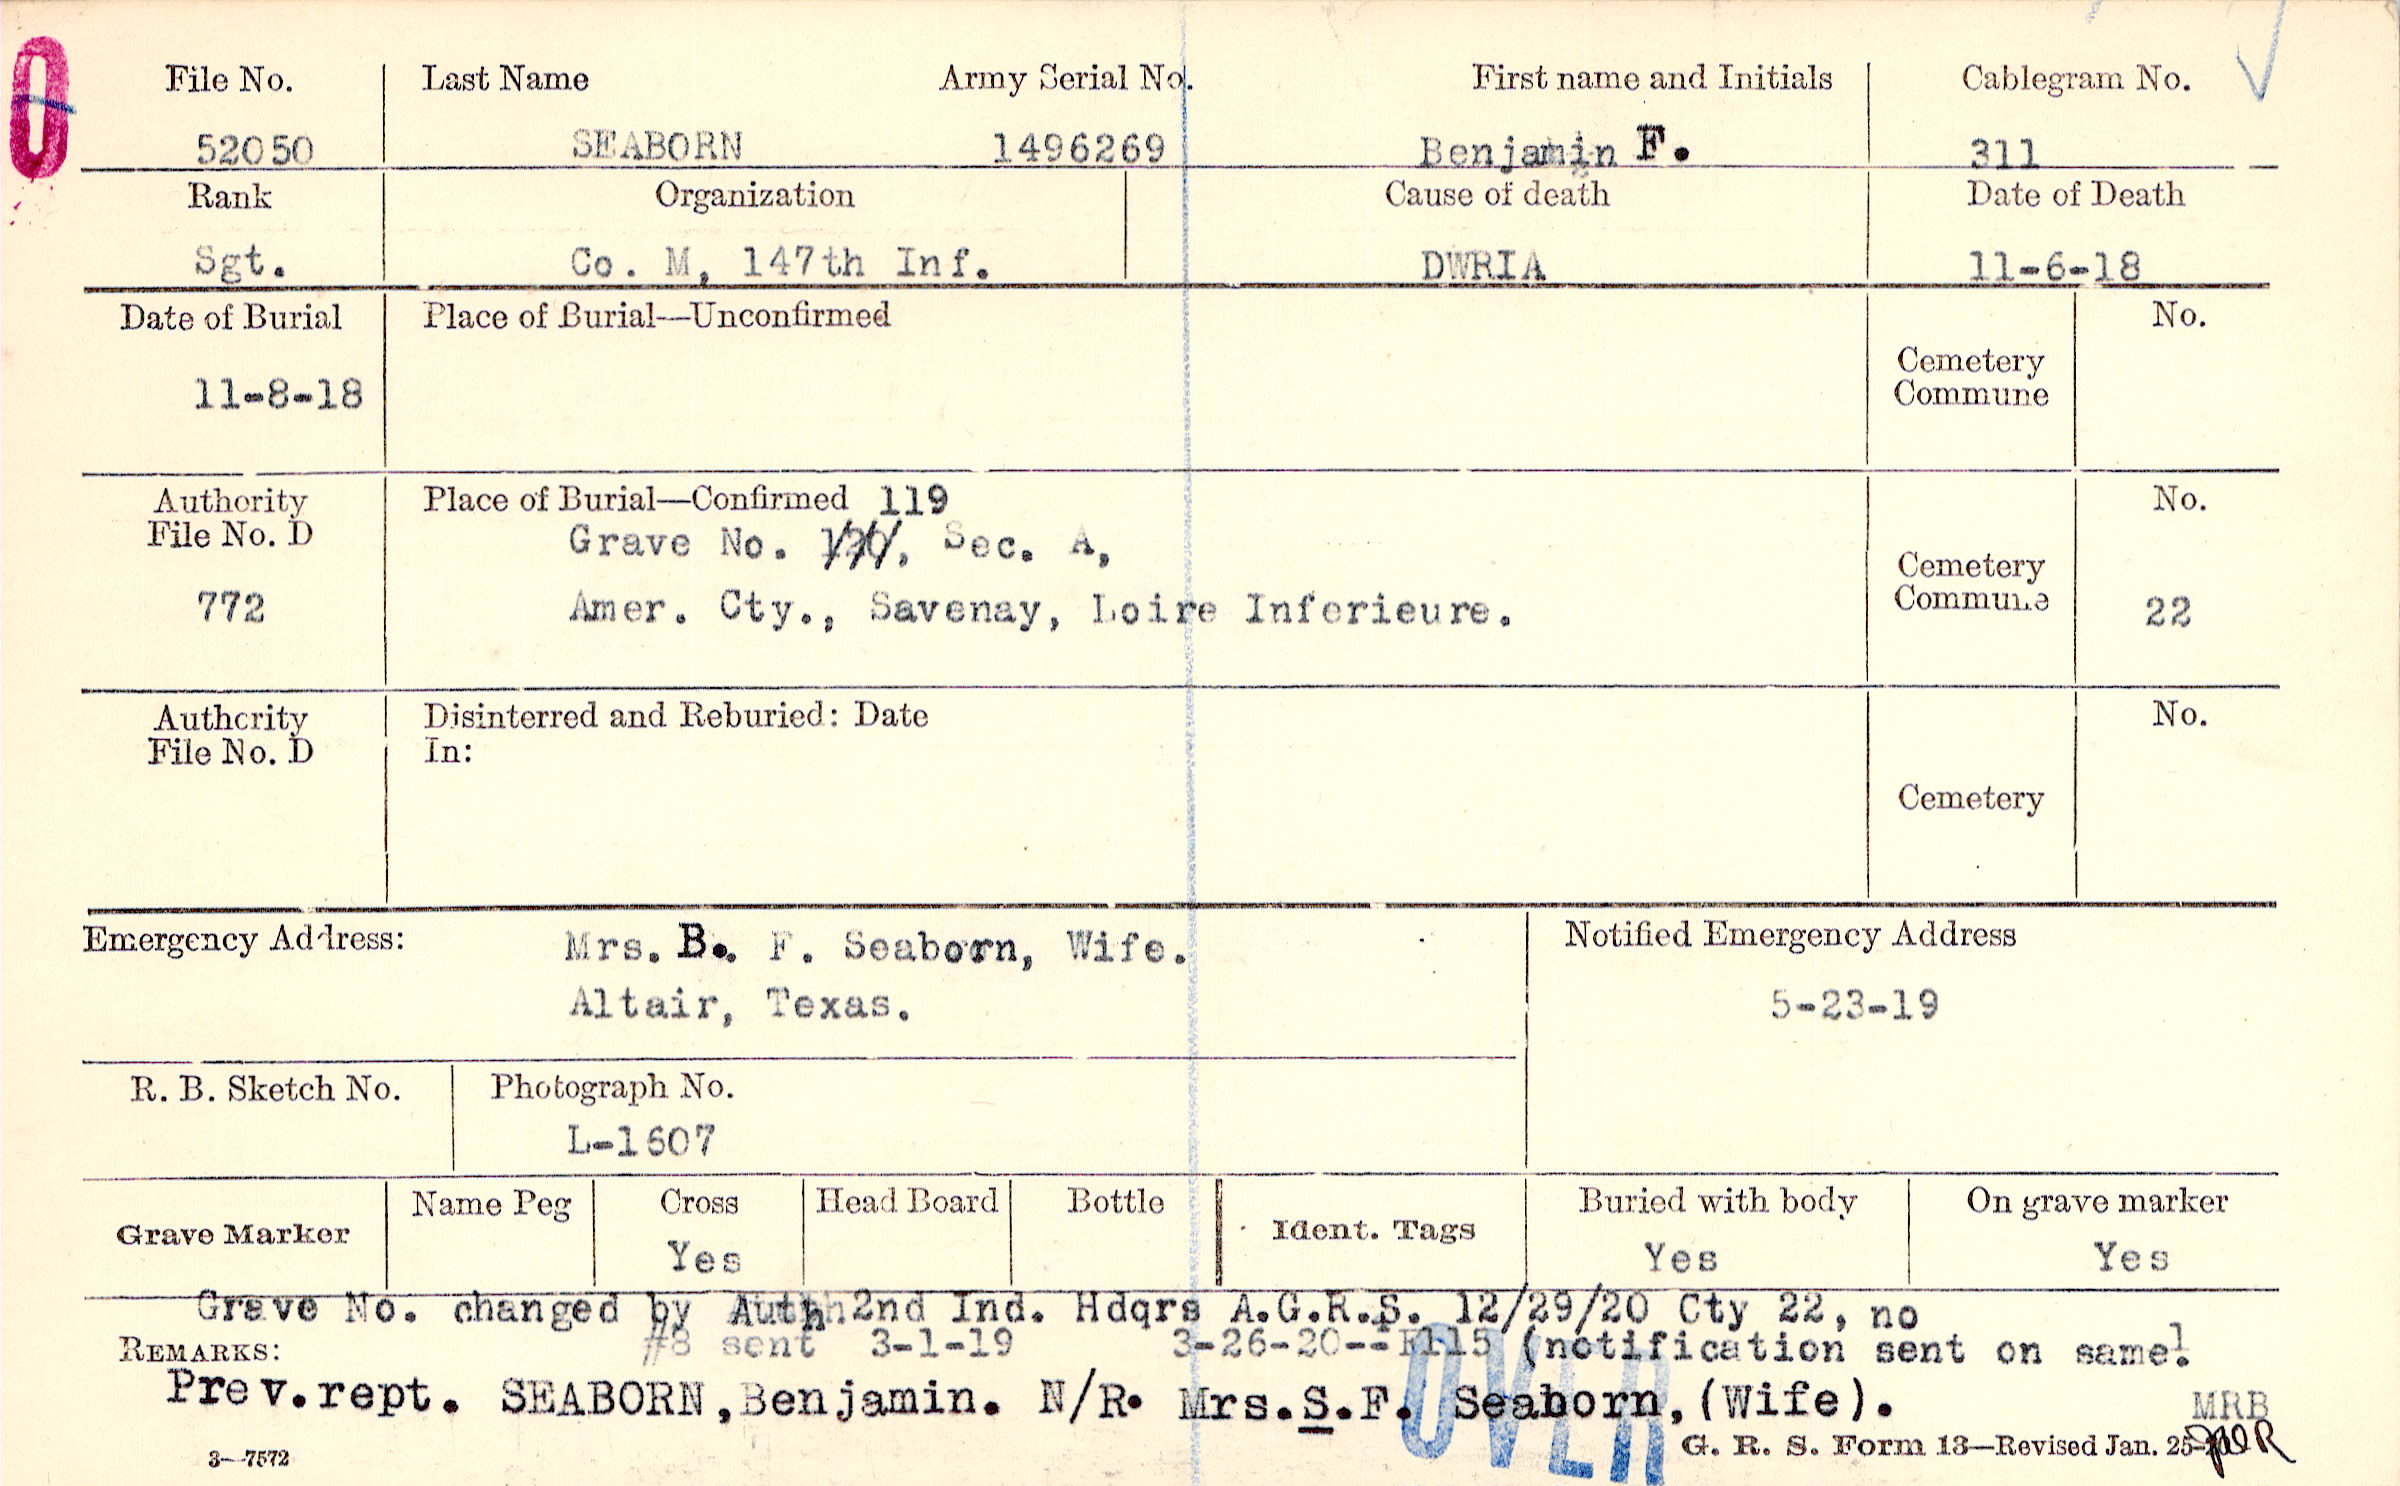 O
File No. Last Name Army Serial No. First name and Initials Cablegram No.
52050 SEABORN 1496269 Benjamin F. 311
Rank Organization Cause of death Date of Death
Sgt. Co. M, 147th Inf. DWRIA 11-6-18
Date of Burial Place of Burial—Unconfirmed No.
Cemetery
Commune
11-8-18
Authority Place of Burial—Confirmed 119 No.
File No. D Grave No. 120, Sec. A,
Cemetery
Commune
772 Amer. Cty., Savenay, Loire Inferieure. 22
Authority Disinterred and Reburied: Date No.
File No. D In:
Cemetery
Emergency Address: Mrs. B. F. Seaborn, Wife. Notified Emergency Address
Altair, Texas. 5-23-19
R. B. Sketch No. Photograph No.
L-1607
Name Peg Cross Head Board Bottle Buried with body On grave marker
Grave Marker Ident. Tags
Yes Yes Yes
Grave No. changed by Auth 2nd Ind. Hdqrs A.G.R.S. 12/29/20 Cty 22, no
#8 sent 3-1-19 3-26-20--F115 (notification sent on same.
REMARKS:
Prev.rept. SEABORN,Benjamin. N/R. Mrs.S.F. Seaborn,(Wife).
MRB
OVER
3—7572 G. R. S. Form 13—Revised Jan. 25